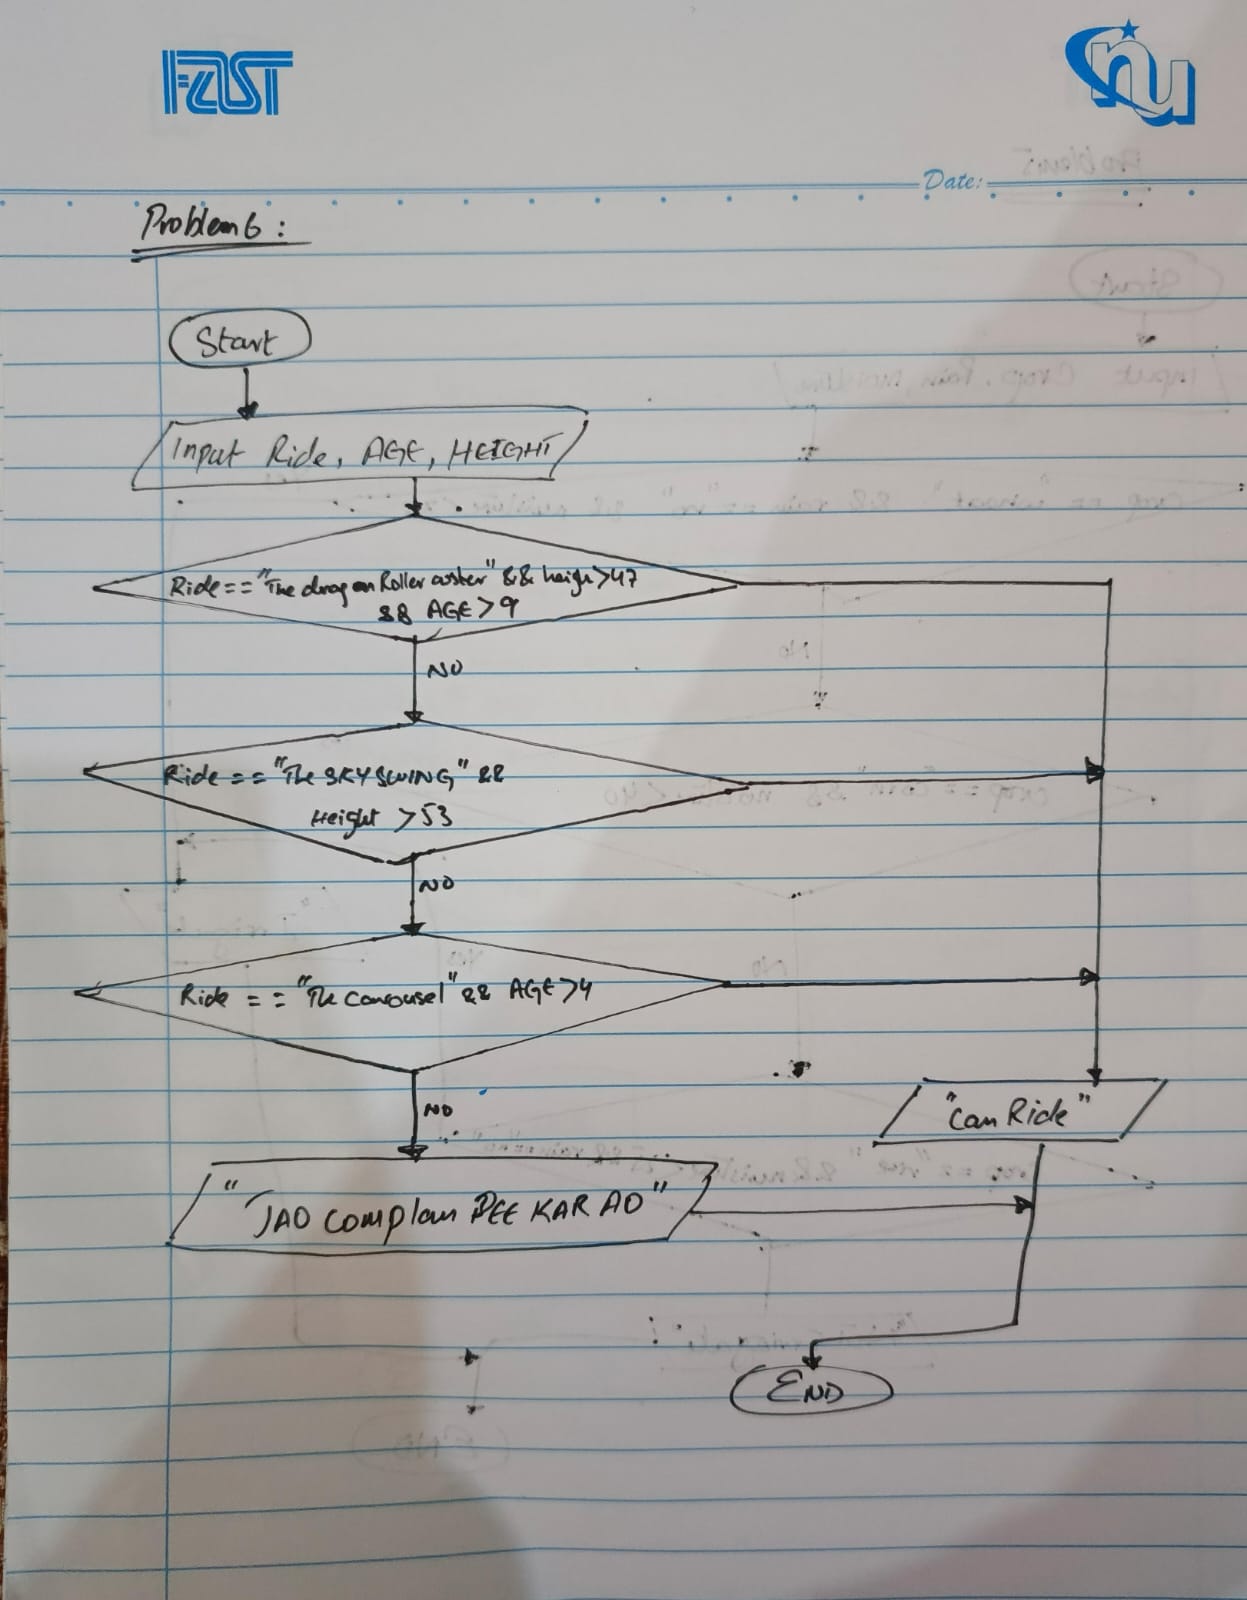 FAST
nu
Date:
Problem 6:
Start
Input Ride, AGE, HEIGHT
Ride == "The dragon Roller coster" && heigh>47
&& AGE > 9
NO
Ride == "The SKY SWING" &&
Height > 53
NO
Ride == "The carousel" && AGE > 4
NO
"can Ride"
"JAO complan PEE KAR AO"
END